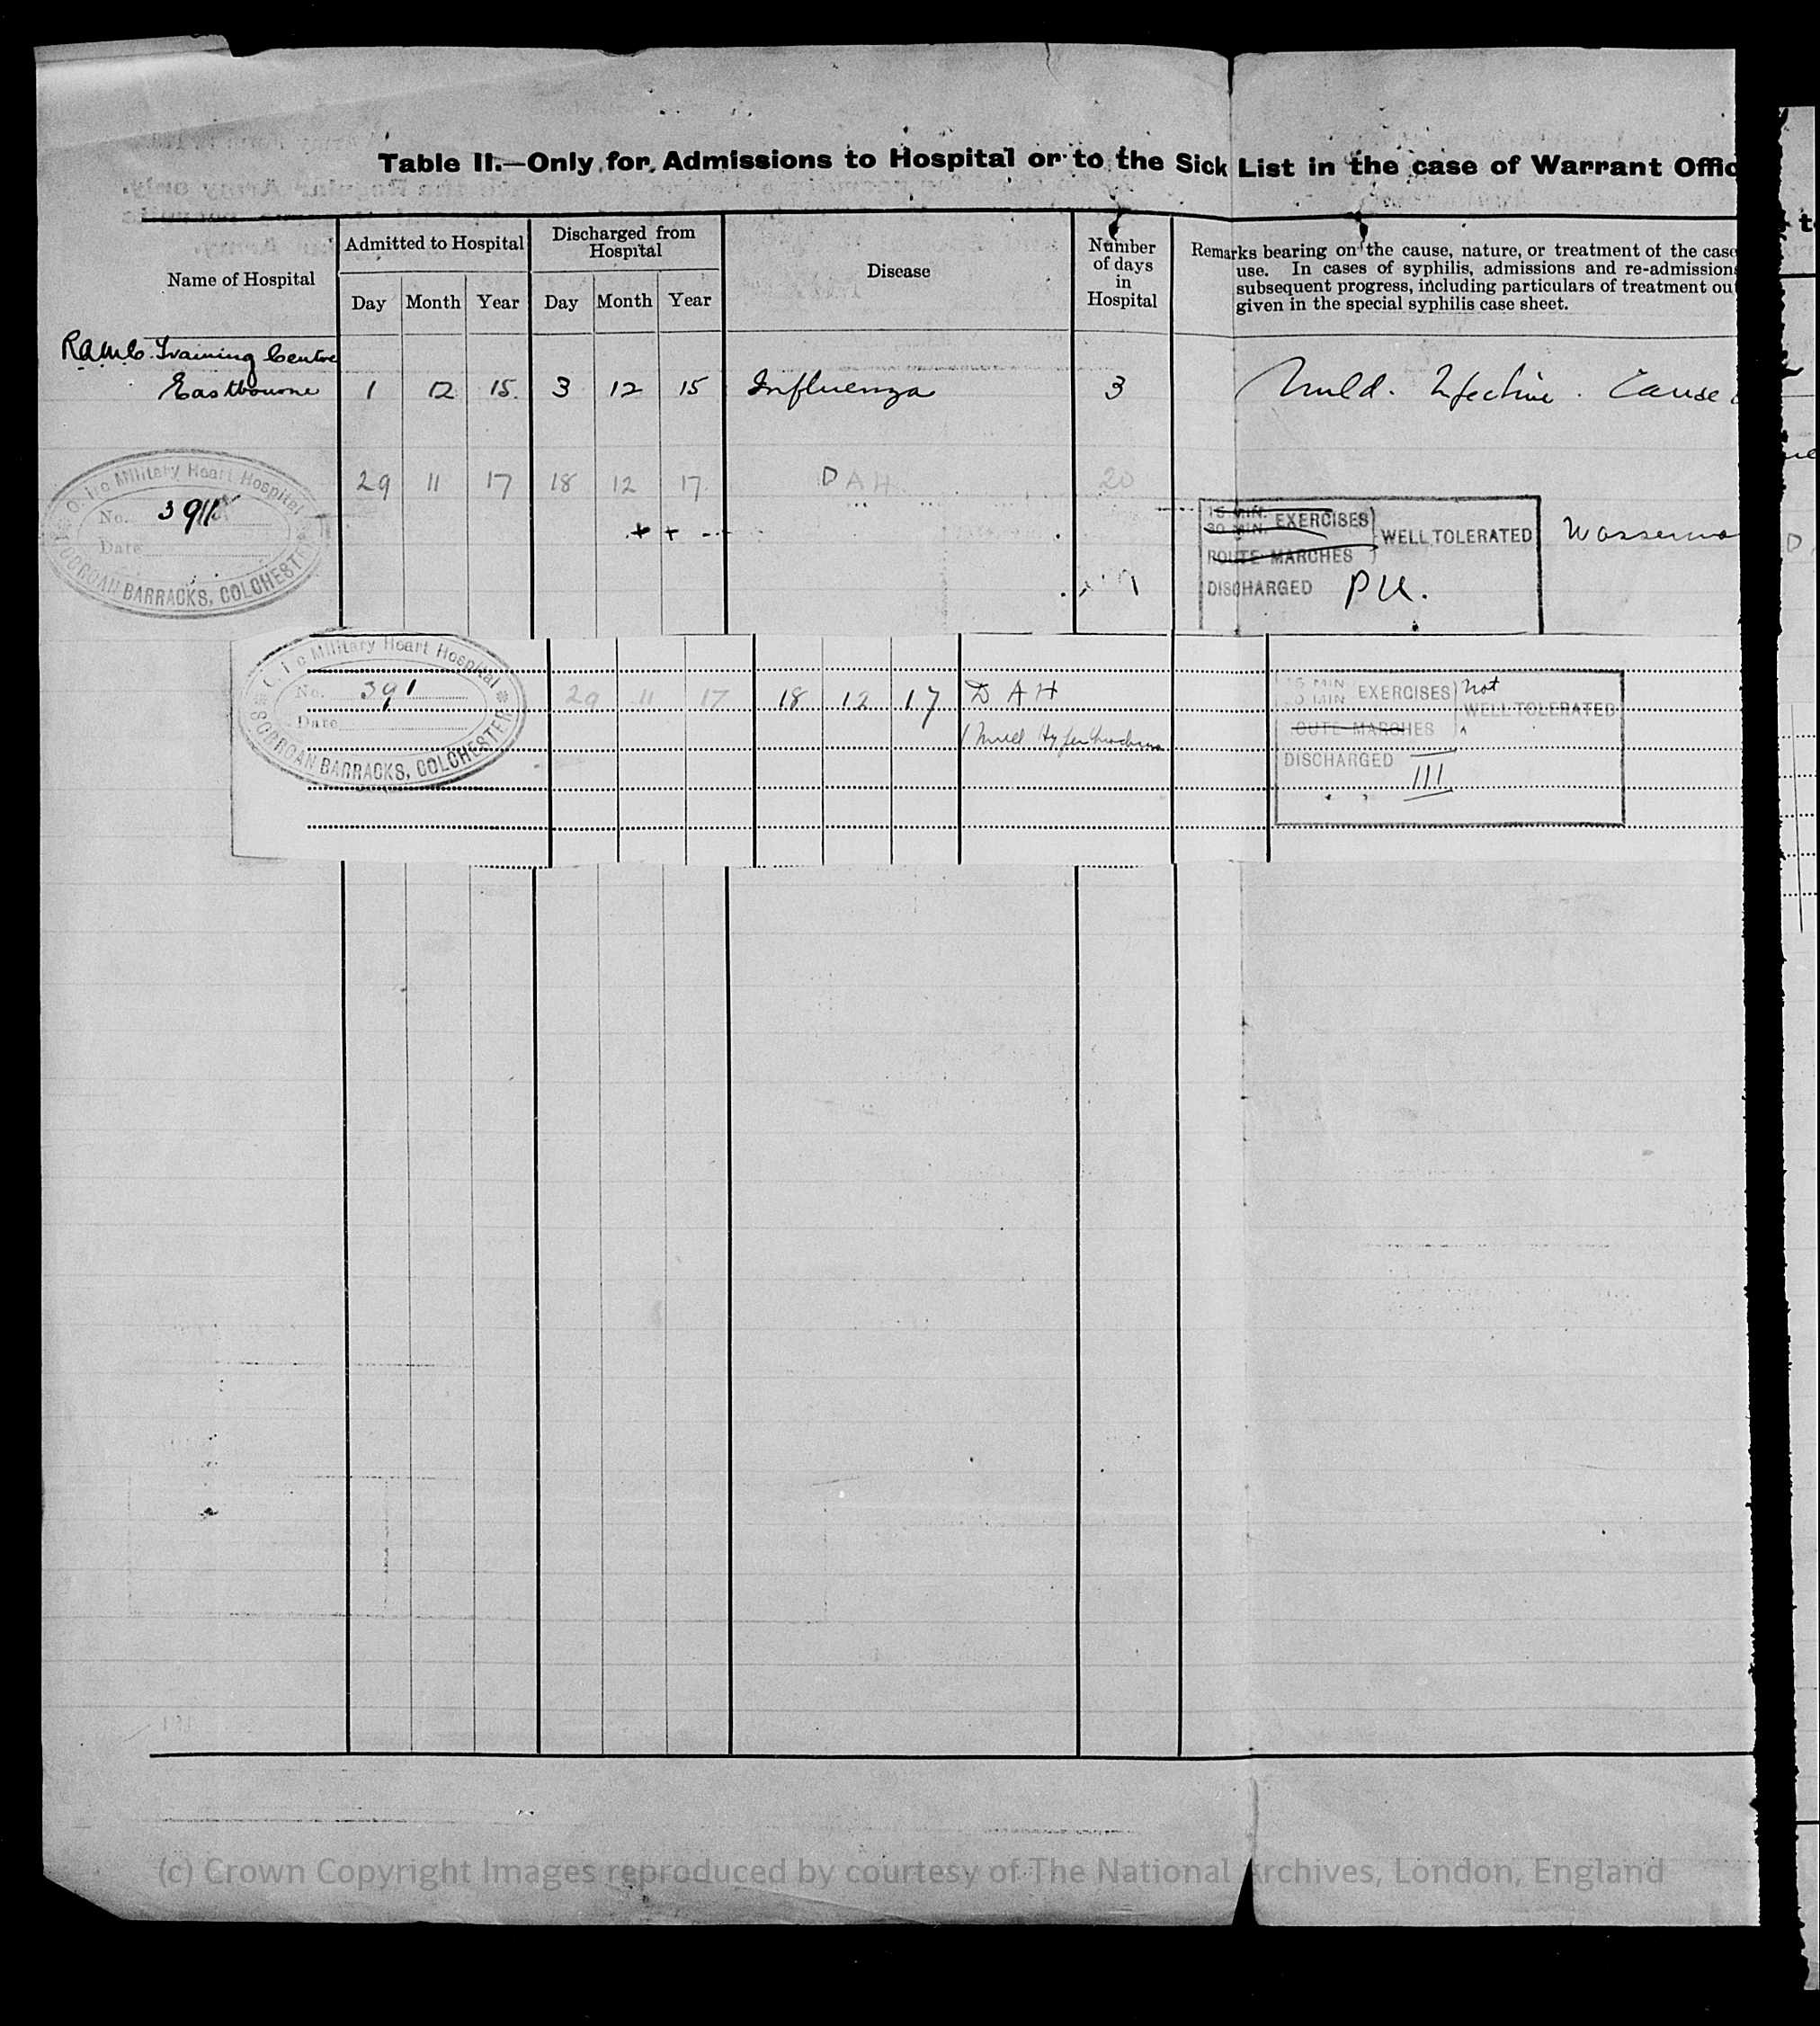 Table II.—Only for Admissions to Hospital or to the Sick List in the case of Warrant Offic
Name of Hospital
Admitted to Hospital
Day Month Year
Discharged from
Hospital
Day Month Year
Disease
Number
of days
in
Hospital
Remarks bearing on the cause, nature, or treatment of the case
use. In cases of syphilis, admissions and re-admission
subsequent progress, including particulars of treatment ou
given in the special syphilis case sheet.
RAMC. Training Centre
Eastbourne 1 12 15. 3 12 15 Influenza 3 Mild. Infective. Cause
Military Heart Hospital
No. 391
Date
SOBROAN BARRACKS, COLCHESTER
29 11 17 18 12 17 DAH 20
15 MIN.
30 MIN. EXERCISES
ROUTE MARCHES
WELL TOLERATED
DISCHARGED
Wasserma
Military Heart Hospital
No. 391
Date
SOBROAN BARRACKS, COLCHESTER
29 11 17 18 12 17 DAH
15 MIN
30 MIN EXERCISES
ROUTE MARCHES
not
WELL TOLERATED
DISCHARGED
III
(c) Crown Copyright Images reproduced by courtesy of The National Archives, London, England